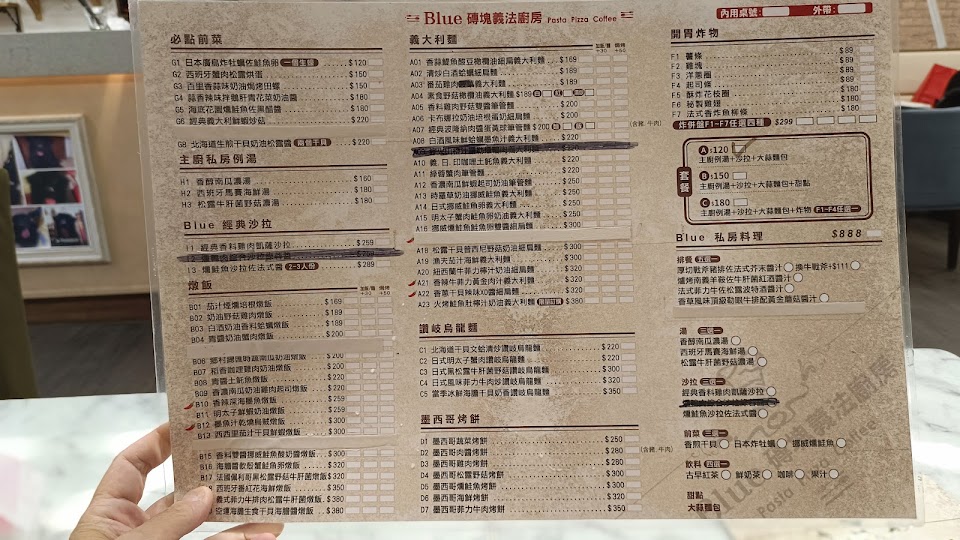 Blue 磚塊義法廚房 Pasta Pizza Coffee
內用桌號: 外帶:
必點前菜
G1 日本廣島炸牡蠣佐鮭魚卵 $120
G2 西班牙蟹肉松露烘蛋 $150
G3 百里香蒜味奶油焗烤田螺 $150
G4 蒜香辣味拌鵝肝青花菜奶油醬 $180
G5 海底花園燻鮭魚佐黑醋醬 $180
G6 經典義大利鮮蝦沙菇 $220
G8 北海道生煎干貝奶油松露醬 $220
主廚私房例湯
H1 香醇南瓜濃湯 $160
H2 西班牙馬賽海鮮湯 $180
H3 松露牛肝菌野菇濃湯 $180
Blue 經典沙拉
I1 經典香料雞肉凱薩沙拉 $259
I3 燻鮭魚沙拉佐法式醬 2-3人份 $289
燉飯
B01 茄汁煙燻培根燉飯 $169
B02 奶油野菇雞肉燉飯 $189
B03 白酒奶油香料蛤蠣燉飯 $189
B04 青醬奶油雞肉燉飯 $200
B07 稻香咖哩雞肉奶油燉飯 $200
B08 青醬土魠魚燉飯 $220
B09 香濃南瓜奶油雞肉起司燉飯 $220
B10 香辣深海墨魚燉飯 $250
B11 明太子鮮蝦奶油燉飯 $250
B12 墨魚汁乾燒烏賊燉飯 $300
B13 西西里茄汁干貝鮮蝦燉飯 $300
B15 香料雙醬挪威鮭魚酸奶醬燉飯 $300
B16 海膽醬軟殼蟹鮭魚卵燉飯 $320
B17 法國佩利哥黑松露野菇牛肝菌燉飯 $320
西班牙番紅花海鮮燉飯 $350
義式菲力牛排肉松露牛肝菌燉飯 $380
空運海膽生食干貝海膽醬燉飯 $380
義大利麵
A01 香蒜鯷魚酸豆橄欖油細扁義大利麵 $169
A02 清炒白酒蛤蠣細扁麵 $189
A03 番茄雞肉義大利麵 $189
A04 素食野菇橄欖油義大利麵 $189
A05 香料雞肉野菇雙醬筆管麵 $200
A06 卡布娜拉奶油培根蛋奶麵 $200
A07 經典波隆納肉醬蛋黃球筆管麵 $200
(含豬.牛肉)
A08 白酒風味鮮蛤蠣墨魚汁義大利麵 $220
A10 義.日.印咖哩土魠魚義大利麵 $220
A11 綠醬蟹肉筆管麵 $220
A12 香濃南瓜鮮蝦起司奶油筆管麵 $250
A13 時蘿草奶油挪威鮭魚義大利麵 $250
A14 日式挪威鮭魚卵義大利麵 $250
A15 明太子蟹肉鮭魚卵奶油義大利麵 $250
A16 挪威燻鮭魚鮮蝦奶油義大利麵 $300
A18 松露干貝普西尼野菇奶油細扁麵 $300
A19 漁夫茄汁海鮮義大利麵 $300
A20 紐西蘭牛菲力檸汁奶油細扁麵 $320
A21 香辣牛菲力黃金肉汁義大利麵 $320
A22 香蔥干貝辣XO醬細扁麵 $320
A23 火烤鮭魚肚檸汁奶油大寬麵 $380
讚岐烏龍麵
C1 北海道干貝文蛤清炒讚岐烏龍麵 $220
C2 日式明太子蟹肉讚岐烏龍麵 $220
C3 日式黑松露牛肝菌野菇讚岐烏龍麵 $300
C4 日式風味菲力牛肉炒讚岐烏龍麵 $320
C5 當季冰鮮海膽干貝奶香讚岐烏龍麵 $350
墨西哥烤餅
D1 墨西哥蔬菜烤餅 $250
D2 墨西哥肉醬烤餅 $280
(含豬.牛肉)
D3 墨西哥雞肉烤餅 $280
D4 墨西哥松露野菇烤餅 $300
D5 墨西哥燻鮭魚烤餅 $300
D6 墨西哥海鮮烤餅 $320
D7 墨西哥菲力牛肉烤餅 $350
開胃炸物
F1 薯條 $89
F2 雞塊 $89
F3 洋蔥圈 $89
F4 起司條 $89
F5 酥炸花枝圈 $180
F6 秘製雞翅 $180
F7 法式香炸魚柳條 $180
炸併盤F1-F7任選四種 $299
套餐
A $120
主廚例湯+沙拉+大蒜麵包
B $150
主廚例湯+沙拉+大蒜麵包+甜點
C $180
主廚例湯+沙拉+大蒜麵包+炸物 F1-F4任選一
Blue 私房料理 $888
排餐 五選一
厚切戰斧豬排佐法式芥末醬汁 換牛戰斧+$111
爐烤南義羊殺佐牛肝菌紅酒醬汁
法式菲力牛佐松露波特酒醬汁
香草風味頂級肋眼牛排配黃金蘑菇醬汁
湯 三選一
香醇南瓜濃湯
西班牙馬賽海鮮湯
松露牛肝菌野菇濃湯
沙拉 三選一
經典香料雞肉凱薩沙拉
燻鮭魚沙拉佐法式醬
前菜 三選一
香煎干貝 日本炸牡蠣 挪威燻鮭魚
飲料 四選一
古早紅茶 鮮奶茶 咖啡 果汁
甜點
大蒜麵包